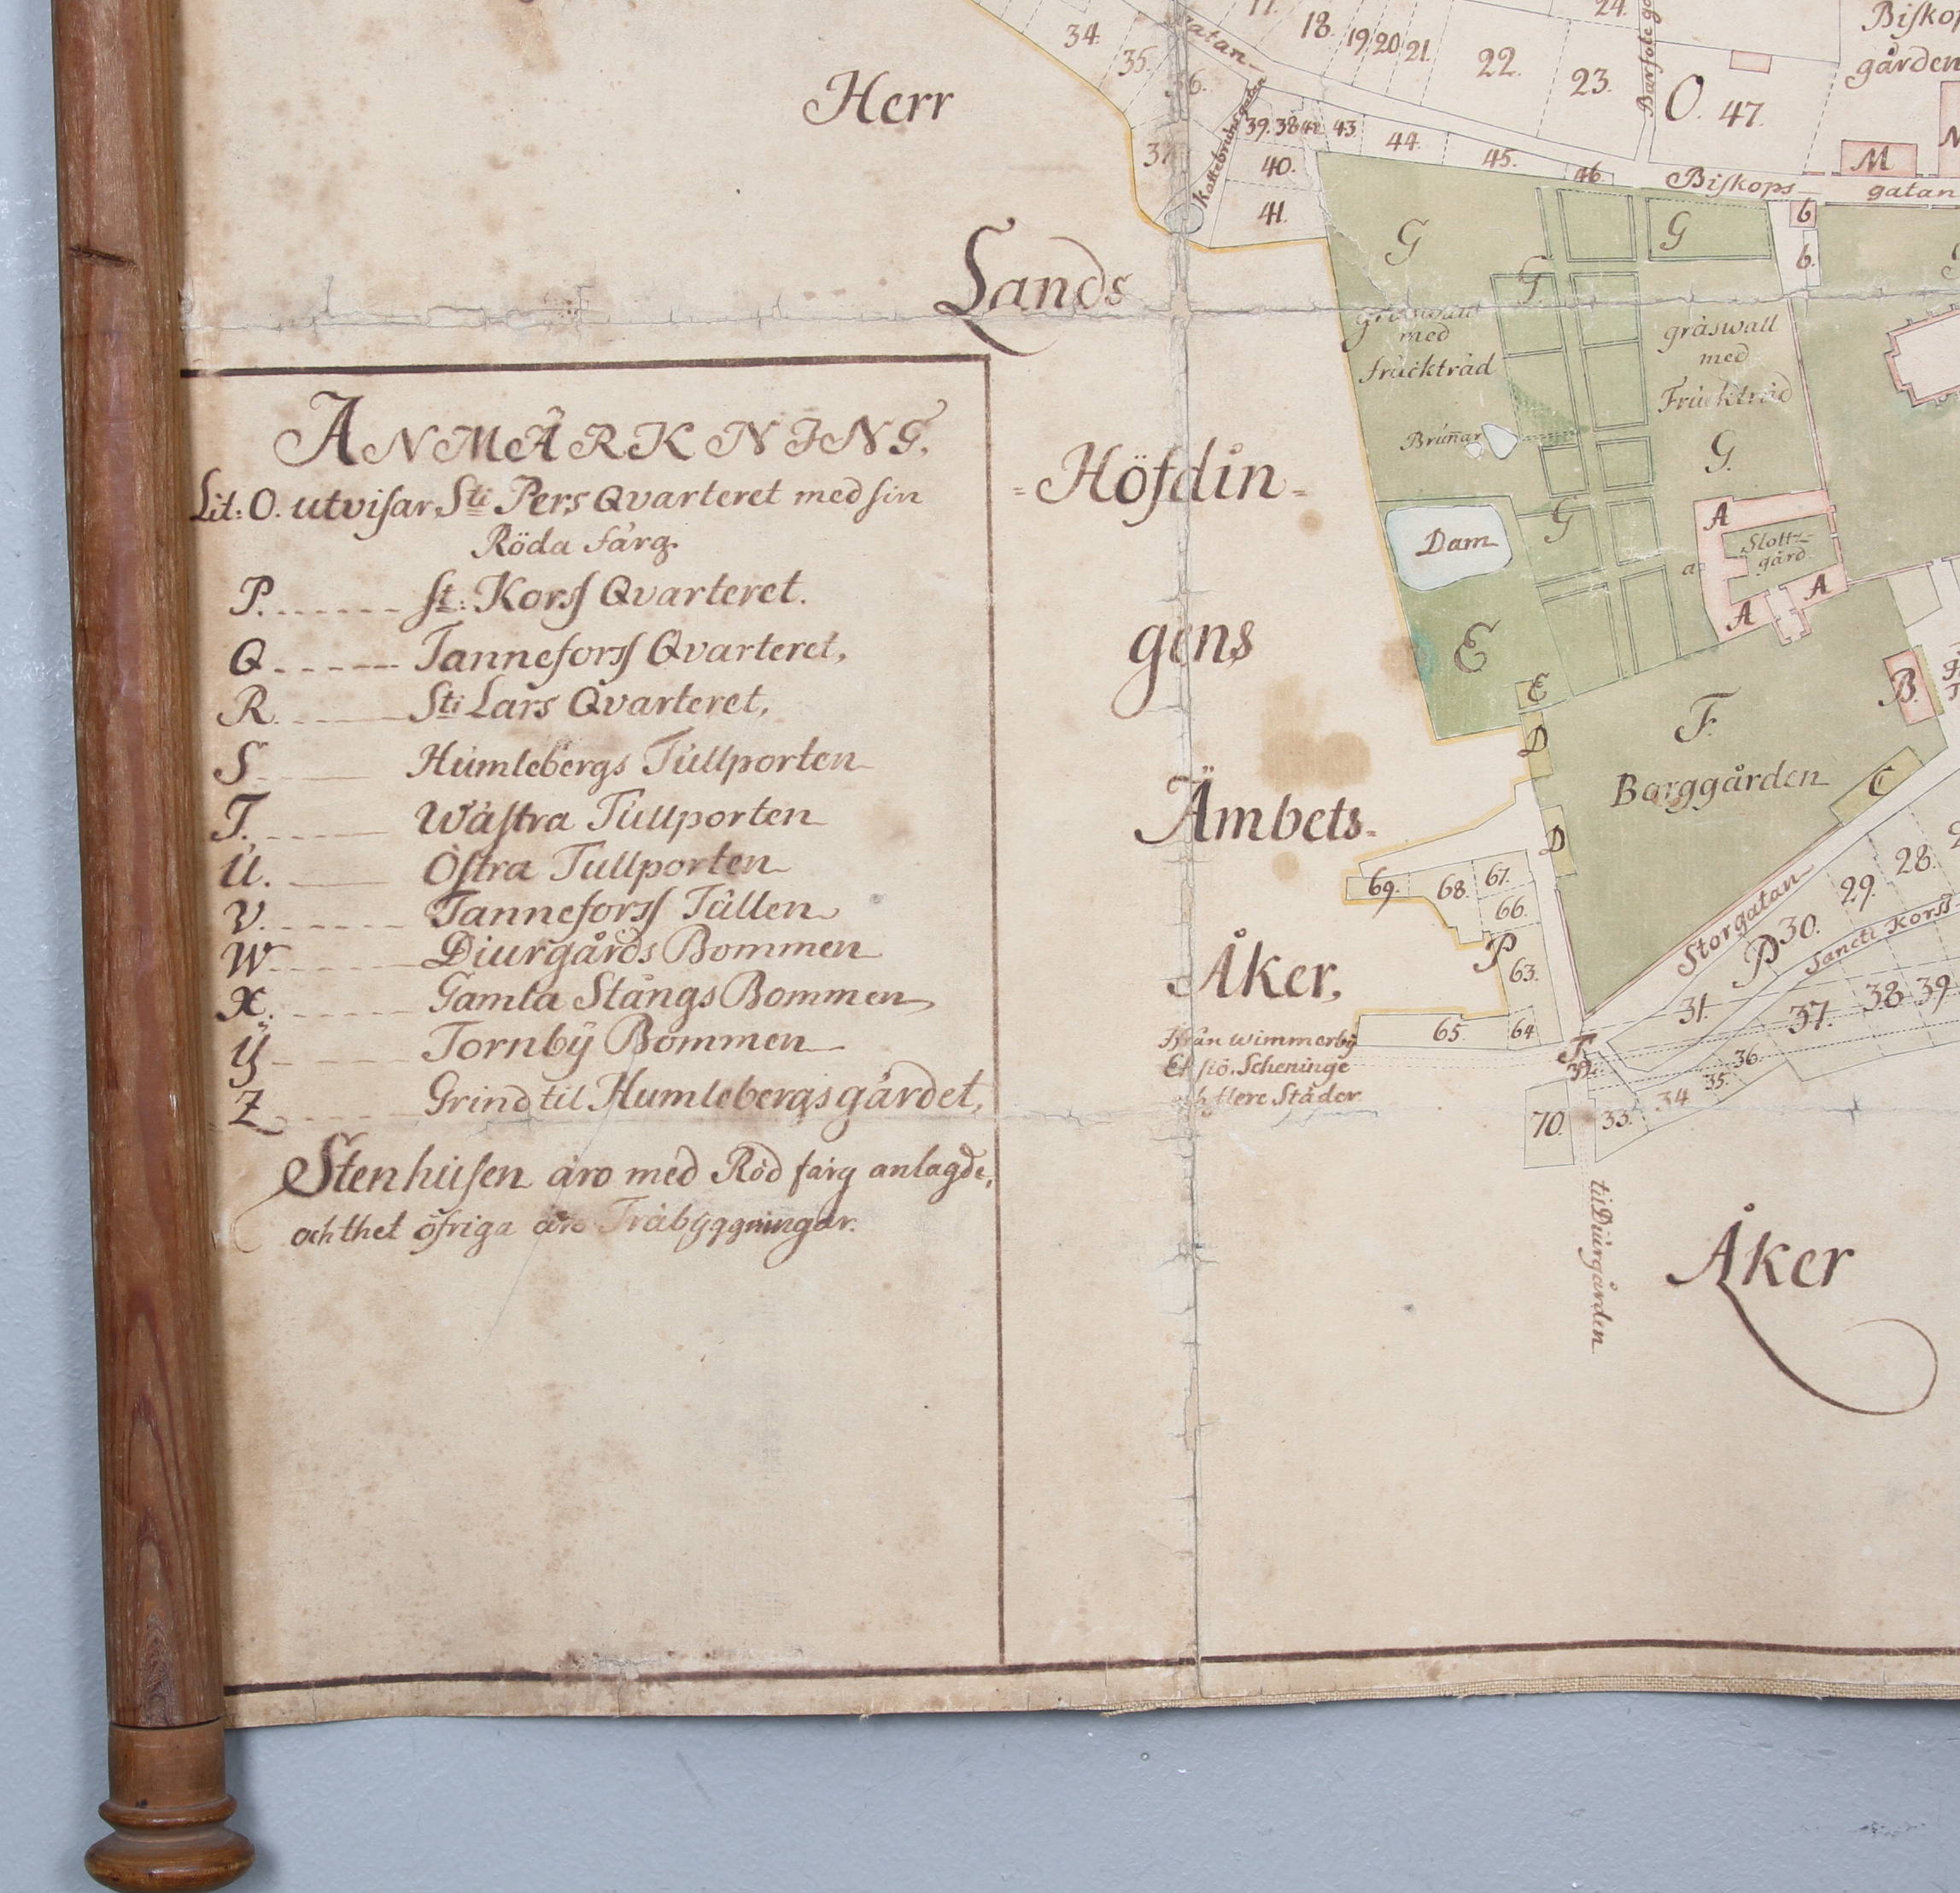 ANMÄRKNING.
Lit: O. utvisar, Sti Pers Qvarteret med sin
Röda färg.
P. St: Korss Qvarteret.
Q Tanneforss Qvarteret,
R Sti Lars Qvarteret,
S Humlebergs Tullporten
T. Wästra Tullporten
U. Östra Tullporten
V. Tanneforss Tullen
W Diurgårds Bommen
X. Gamla Stångs Bommen
Ÿ Tornbÿ Bommen
Z Grind til Humlebergsgärdet,
Stenhusen äro med Röd färg anlagde,
och thet öfriga äro Träbÿggningar.
Herr
Lands
=Höfdin=
gens
Ämbets=
Åker,
Från Wimmerbÿ
Eksiö, Scheninge
och flere Städer
Åker
til Diurgården
34.
35.
36.
37.
gatan
Kattebruns gatan
17.
18.
19
20
21.
22.
23.
24.
Barfote
O. 47.
Biskops
gården
M
39.
38
42
43
44.
45.
46
40.
41.
Biskops
gatan
6
6.
G
G
G
gräswall
med
fruckträd
gräswall
med
Fruckträd
G.
Brunar
Dam
G
A
Slotts-
gård
a
A
A
E
E
D
B.
F.
Borggården
C
D
69.
68.
67.
66.
P
63.
65
64
Storgatan
P
30.
29.
28.
Sancti Korss
31.
37.
38
39
T.
36.
35.
34
33.
70.